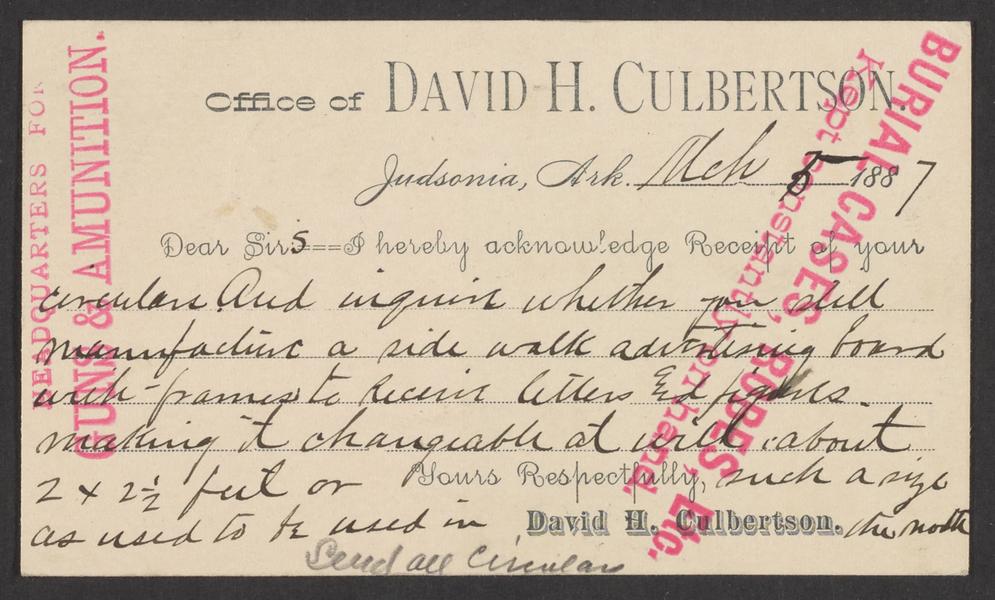 HEADQUARTERS FOR
GUNS & AMUNITION.
BURIAL CASES, ROBES, Etc.
Kept constantly on hand.
Office of DAVID H. CULBERTSON.
Judsonia, Ark. Mch 5 1887
Dear Sirs==I hereby acknowledge Receipt of your
circulars. And inquire whether you still
manufacture a side walk advertising board
with frames to receive letters & figures.
making it changeable at will. about
2 x 2½ feet or Yours Respectfully, such a size
as used to be used in David H. Culbertson. the north
Send all Circulars